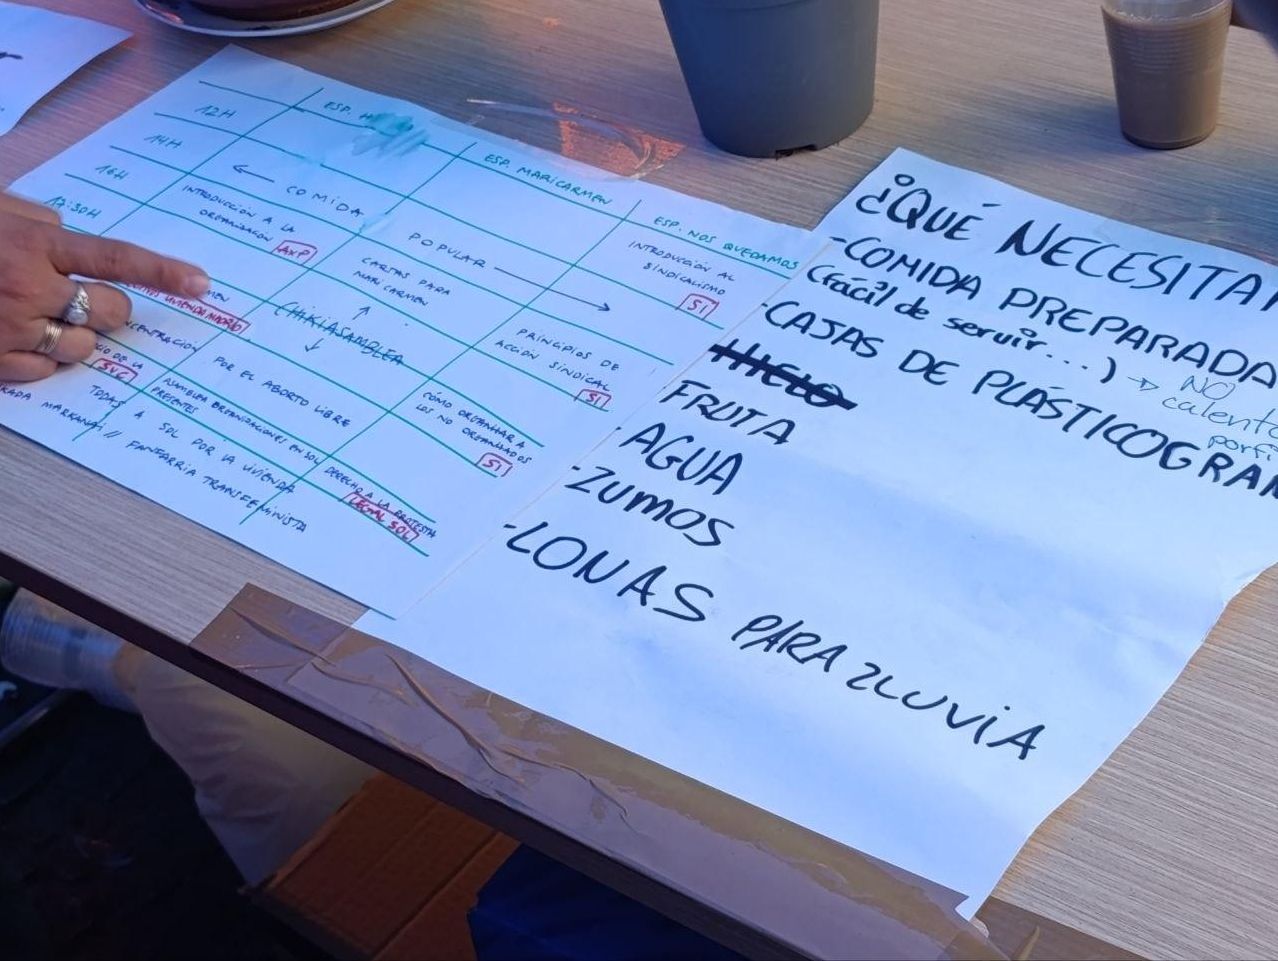 12H
14H
16H
17:30H
ESP.
ESP. MARICARMEN
ESP. NOS QUEDAMOS
← COMIDA
POPULAR →
INTRODUCCIÓN A LA
ORGANIZACIÓN AXP
CARTAS PARA
MARICARMEN
INTRODUCCIÓN AL
SINDICALISMO
SI
VIVIENDA MADRID
↑
CHIKIASAMBLEA
↓
PRINCIPIOS DE
ACCIÓN SINDICAL
SI
POR EL ABORTO LIBRE
CÓMO ORGANIZAR A
LOS NO ORGANIZADOS
SI
DE LA
SVC
ASAMBLEA ORGANIZACIONES EN SOL
PRESENTES
DERECHO A LA PROTESTA
LEGAL SOL
TODAS A SOL POR LA VIVIENDA
// FANFARRIA TRANSFEMINISTA
¿QUÉ
-COMIDA PREPARADA
(fácil de servir...) → NO
-CAJAS DE PLÁSTICO
HIELO
FRUTA
-AGUA
-ZUMOS
-LONAS PARA LLUVIA